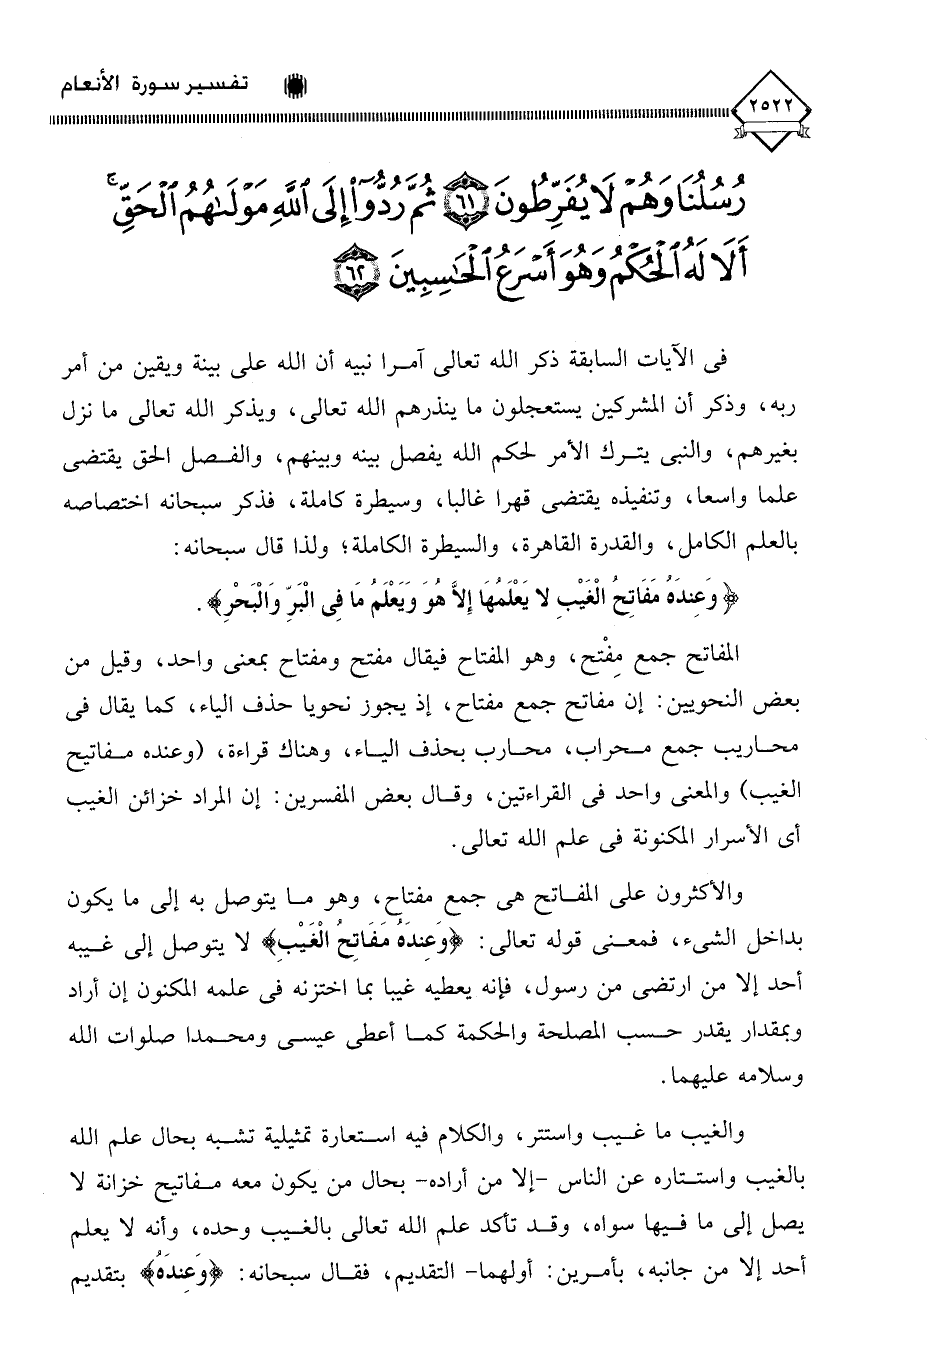 تفسير سورة الأنعام
٢٥٢٢
رُسُلُنَا وَهُمْ لَا يُفَرِّطُونَ ٦١ ثُمَّ رُدُّوٓا۟ إِلَى ٱللَّهِ مَوْلَىٰهُمُ ٱلْحَقِّ ۚ
أَلَا لَهُ ٱلْحُكْمُ وَهُوَ أَسْرَعُ ٱلْحَٰسِبِينَ ٦٢
فى الآيات السابقة ذكر الله تعالى آمرا نبيه أن الله على بينة ويقين من أمر
ربه، وذكر أن المشركين يستعجلون ما ينذرهم الله تعالى، ويذكر الله تعالى ما نزل
بغيرهم، والنبى يترك الأمر لحكم الله يفصل بينه وبينهم، والفصل الحق يقتضى
علما واسعا، وتنفيذه يقتضى قهرا غالبا، وسيطرة كاملة، فذكر سبحانه اختصاصه
بالعلم الكامل، والقدرة القاهرة، والسيطرة الكاملة؛ ولذا قال سبحانه:
﴿وَعِندَهُ مَفَاتِحُ الْغَيْبِ لا يَعْلَمُهَا إِلاَّ هُوَ وَيَعْلَمُ مَا فِى الْبَرِّ وَالْبَحْرِ﴾.
المفاتح جمع مِفْتح، وهو المفتاح فيقال مفتح ومفتاح بمعنى واحد، وقيل من
بعض النحويين: إن مفاتح جمع مفتاح، إذ يجوز نحويا حذف الياء، كما يقال فى
محاريب جمع محراب، محارب بحذف الياء، وهناك قراءة، (وعنده مفاتيح
الغيب) والمعنى واحد فى القراءتين، وقال بعض المفسرين: إن المراد خزائن الغيب
أى الأسرار المكنونة فى علم الله تعالى.
والأكثرون على المفاتح هى جمع مفتاح، وهو ما يتوصل به إلى ما يكون
بداخل الشىء، فمعنى قوله تعالى: ﴿وَعِندَهُ مَفَاتِحُ الْغَيْبِ﴾ لا يتوصل إلى غيبه
أحد إلا من ارتضى من رسول، فإنه يعطيه غيبا بما اختزنه فى علمه المكنون إن أراد
وبمقدار يقدر حسب المصلحة والحكمة كما أعطى عيسى ومحمدا صلوات الله
وسلامه عليهما.
والغيب ما غيب واستتر، والكلام فيه استعارة تمثيلية تشبه بحال علم الله
بالغيب واستتاره عن الناس -إلا من أراده- بحال من يكون معه مفاتيح خزانة لا
يصل إلى ما فيها سواه، وقد تأكد علم الله تعالى بالغيب وحده، وأنه لا يعلم
أحد إلا من جانبه، بأمرين: أولهما- التقديم، فقال سبحانه: ﴿وَعِندَهُ﴾ بتقديم